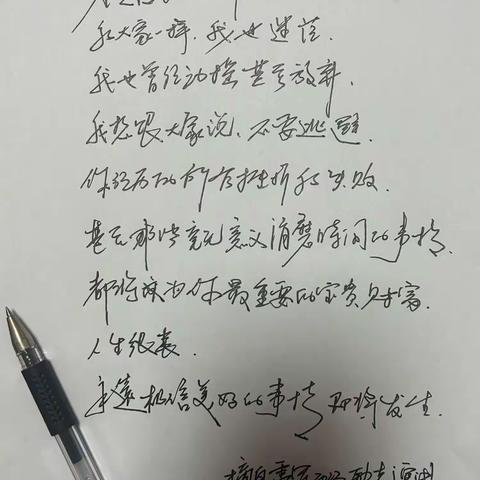 和大家一样，我也迷茫，
我也曾经动摇甚至放弃，
我想跟大家说，不要逃避，
你经历的所有挫折和失败，
甚至那些毫无意义消磨时间的事情，
都将成为你最重要的宝贵财富，
人生很长，
永远相信美好的事情即将发生，
摘自